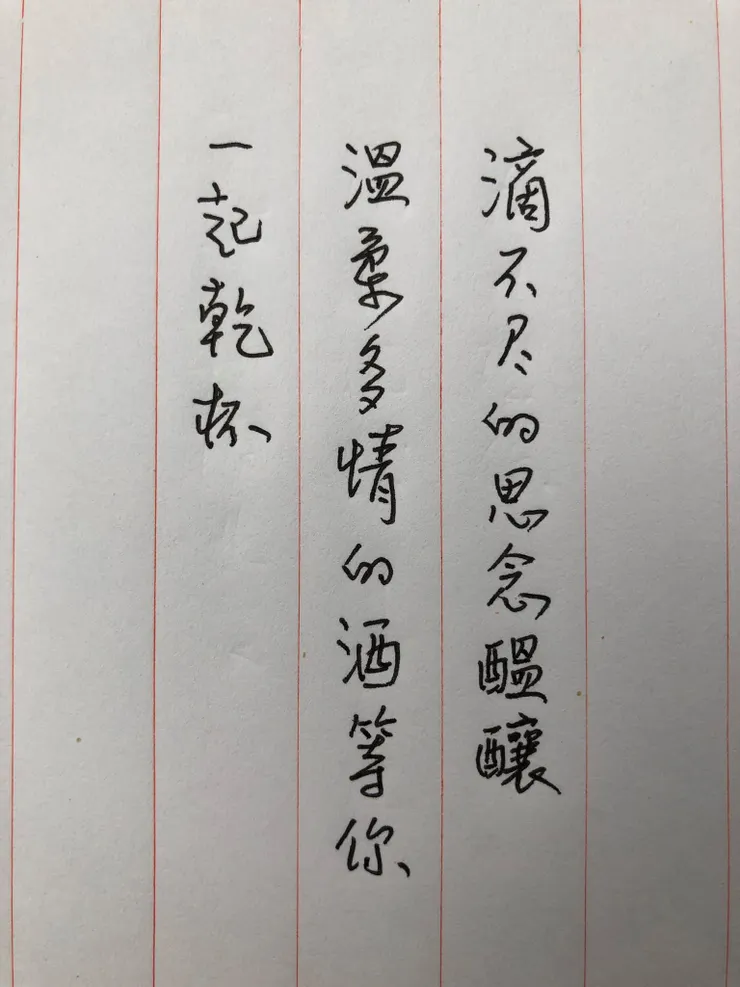 滴不尽的思念醞釀
溫柔多情的酒等你
一起乾杯